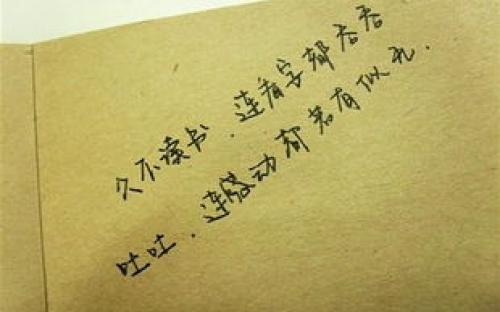 久不读书，连看字都吞吞
吐吐，连感动都若有似无．